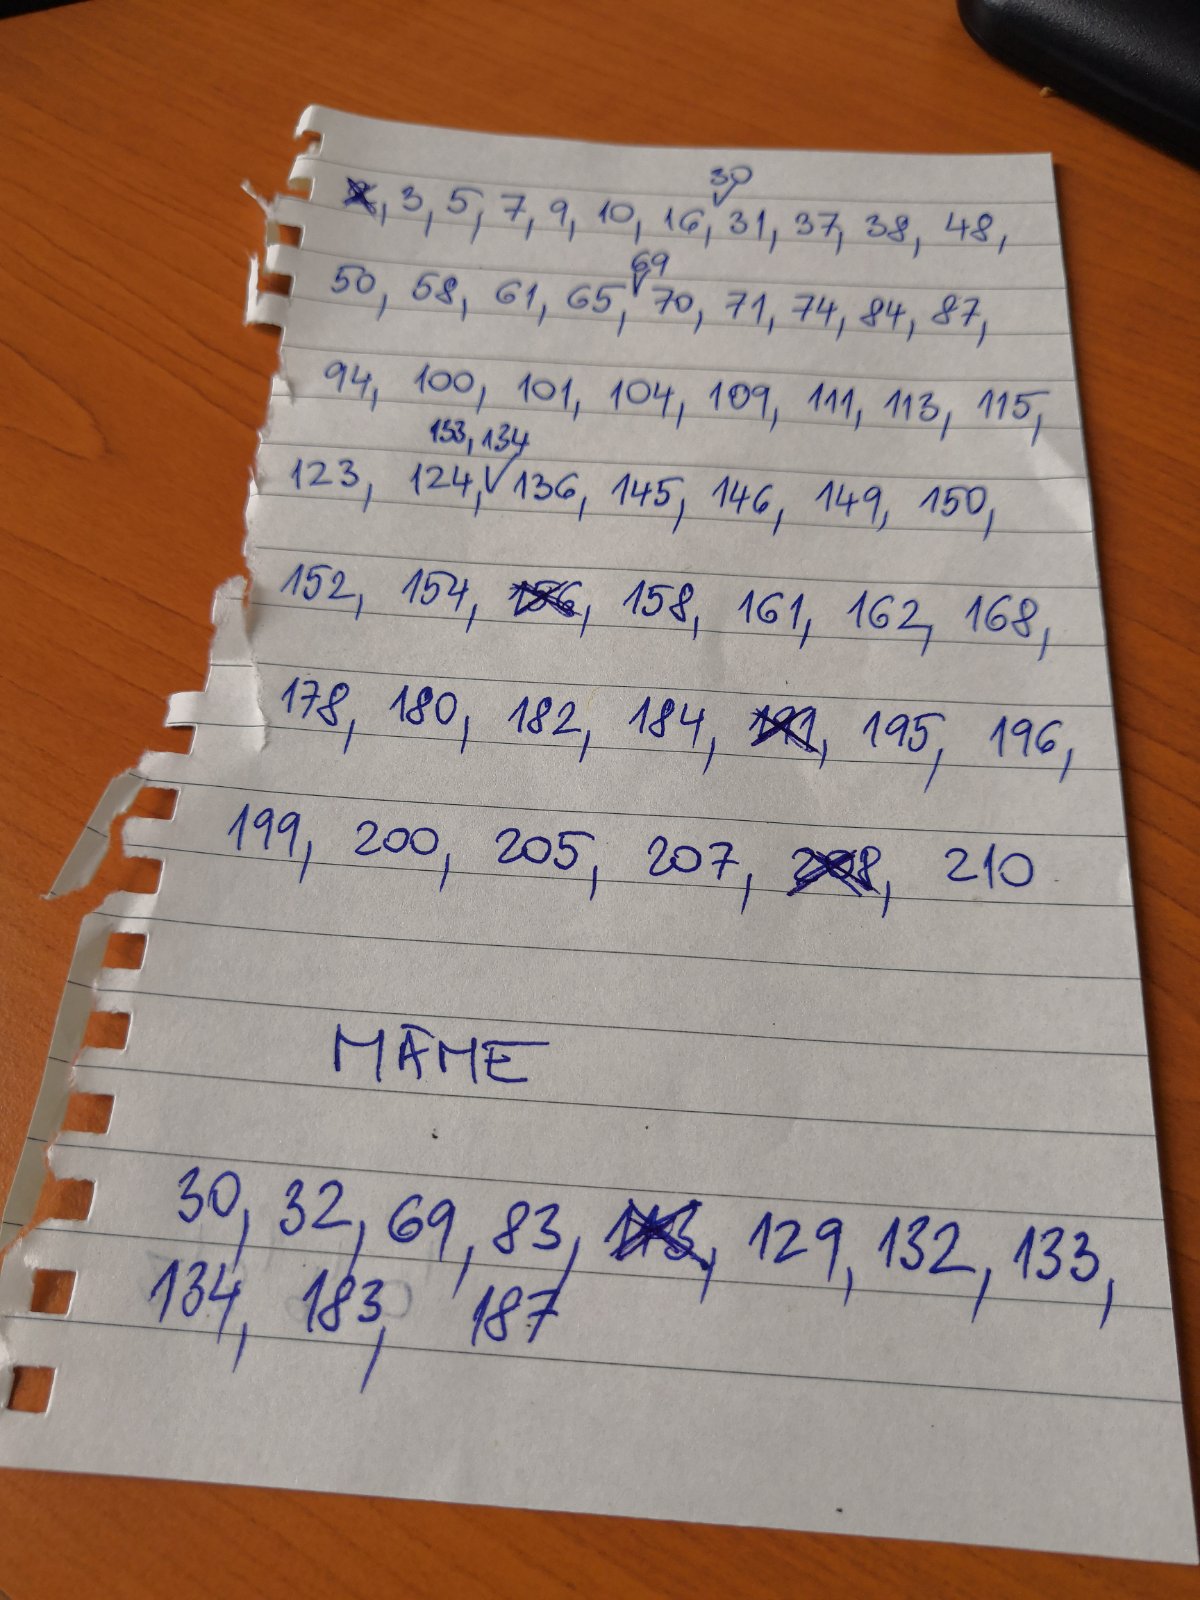 30
3, 5, 7, 9, 10, 16, 31, 37, 38, 48,
69
50, 58, 61, 65, 70, 71, 74, 84, 87,
94, 100, 101, 104, 109, 111, 113, 115,
133, 134
123, 124, 136, 145, 146, 149, 150,
152, 154, 156, 158, 161, 162, 168,
178, 180, 182, 184, 191, 195, 196,
199, 200, 205, 207, 208, 210
MÁME
30, 32, 69, 83, 113, 129, 132, 133,
134, 183, 187